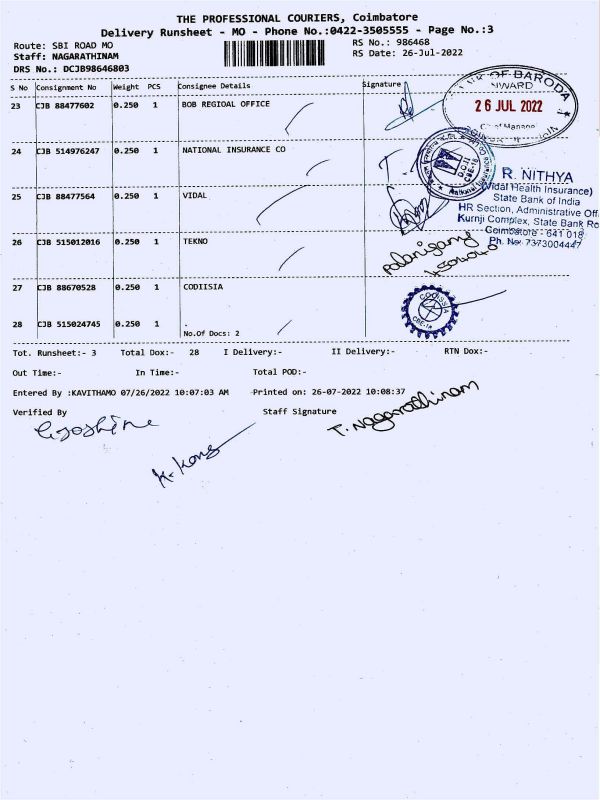 THE PROFESSIONAL COURIERS, Coimbatore
Delivery Runsheet - MO - Phone No.:0422-3505555 - Page No.:3
Route: SBI ROAD MO RS No.: 986468
Staff: NAGARATHINAM RS Date: 26-Jul-2022
DRS No.: DCJB98646803
S No Consignment No Weight PCS Consignee Details Signature
23 CJB 88477602 0.250 1 BOB REGIOAL OFFICE
OF BARODA
26 JUL 2022
24 CJB 514976247 0.250 1 NATIONAL INSURANCE CO
R. NITHYA
(Vidal Health Insurance)
State Bank of India
25 CJB 88477564 0.250 1 VIDAL
HR Section, Administrative Offi
Kurnji Complex, State Bank Ro
Coimbatore - 641 018
Ph. No: 7373004447
26 CJB 515012016 0.250 1 TEKNO
27 CJB 88670528 0.250 1 CODIISIA
CODISSIA
CBE-18
28 CJB 515024745 0.250 1 .
No.Of Docs: 2
Tot. Runsheet:- 3 Total Dox:- 28 I Delivery:- II Delivery:- RTN Dox:-
Out Time:- In Time:- Total POD:-
Entered By :KAVITHAMO 07/26/2022 10:07:03 AM Printed on: 26-07-2022 10:08:37
Verified By Staff Signature
T. Nagarathinam